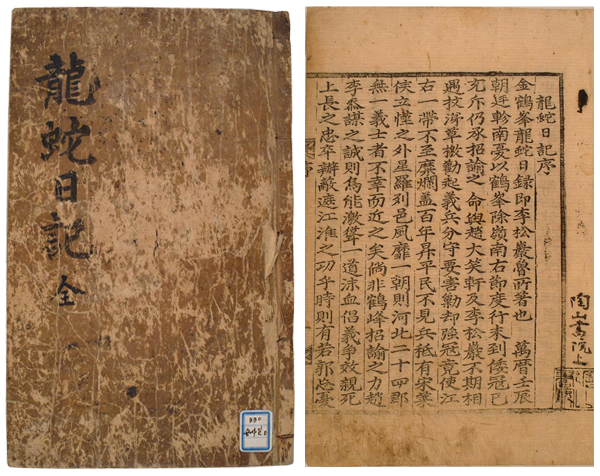 龍蛇日記
全
龍蛇日記序
金鶴峯龍蛇日録即李松巖魯所著也　萬曆壬辰
朝廷軫南憂以鶴峯除嶺南右節度行未到倭冦已
充斥仍承招諭之　命與趙大笑軒及李松巖不期相
遇抆淚草檄勸起義兵分守要害勦却強冦竟使江
右一帶不至糜爛盖百年昇平民不見兵祗有宋葉
俠立慬之外星羅列邑風靡一朝則河北二十四郡
無一義士者不幸而近之矣倘非鶴峰招諭之力趙
李叅謀之誠則烏能激聳一道沫血倡義爭效親死
上長之忠卒辦蔽遮江淮之功乎時則有若郭忘憂
陶山書院上